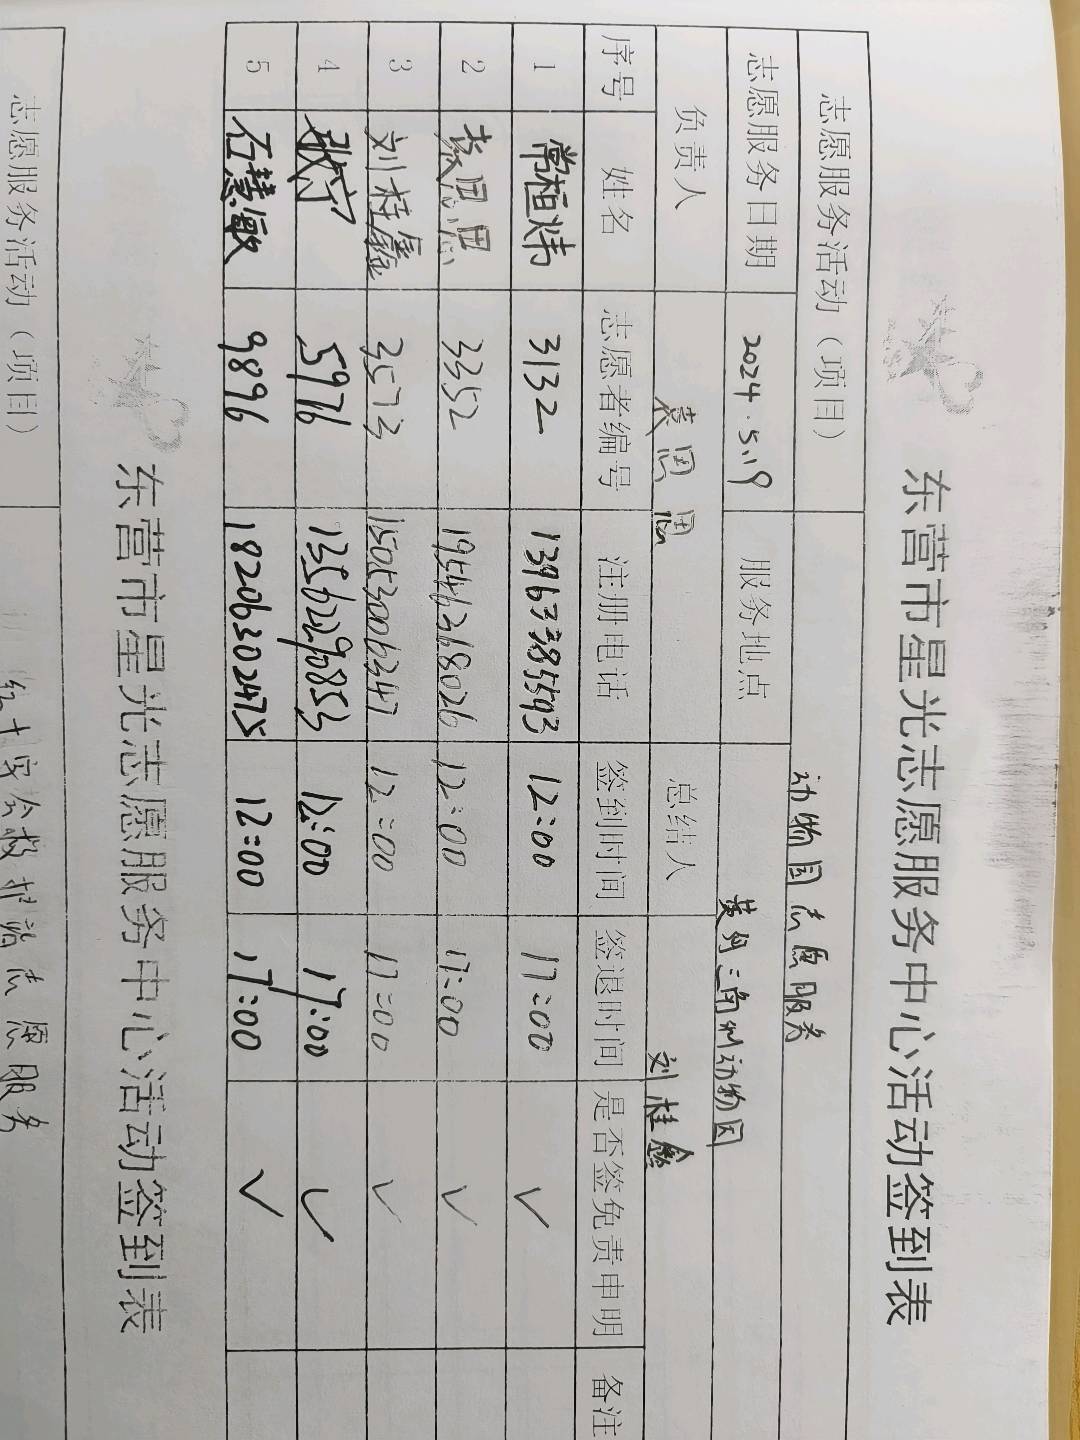 东营市星光志愿服务中心活动签到表
志愿服务活动（项目） 动物园志愿服务
志愿服务日期 2024.5.19 服务地点 黄河三角洲动物园
负责人 袁恩恩 总结人 刘桂鑫
序号 姓名 志愿者编号 注册电话 签到时间 签退时间 是否签免责申明 备注
1 常桓炜 3132 12:00 17:00 ✓
2 袁恩恩 3352 19546368026 12:00 17:00 ✓
3 刘桂鑫 3573 15053006347 12:00 17:00 ✓
4 5976 12:00 17:00 ✓
5 石慧敏 9896 18206302475 12:00 17:00 ✓
东营市星光志愿服务中心活动签到表
志愿服务活动（项目） 红十字会救护站志愿服务